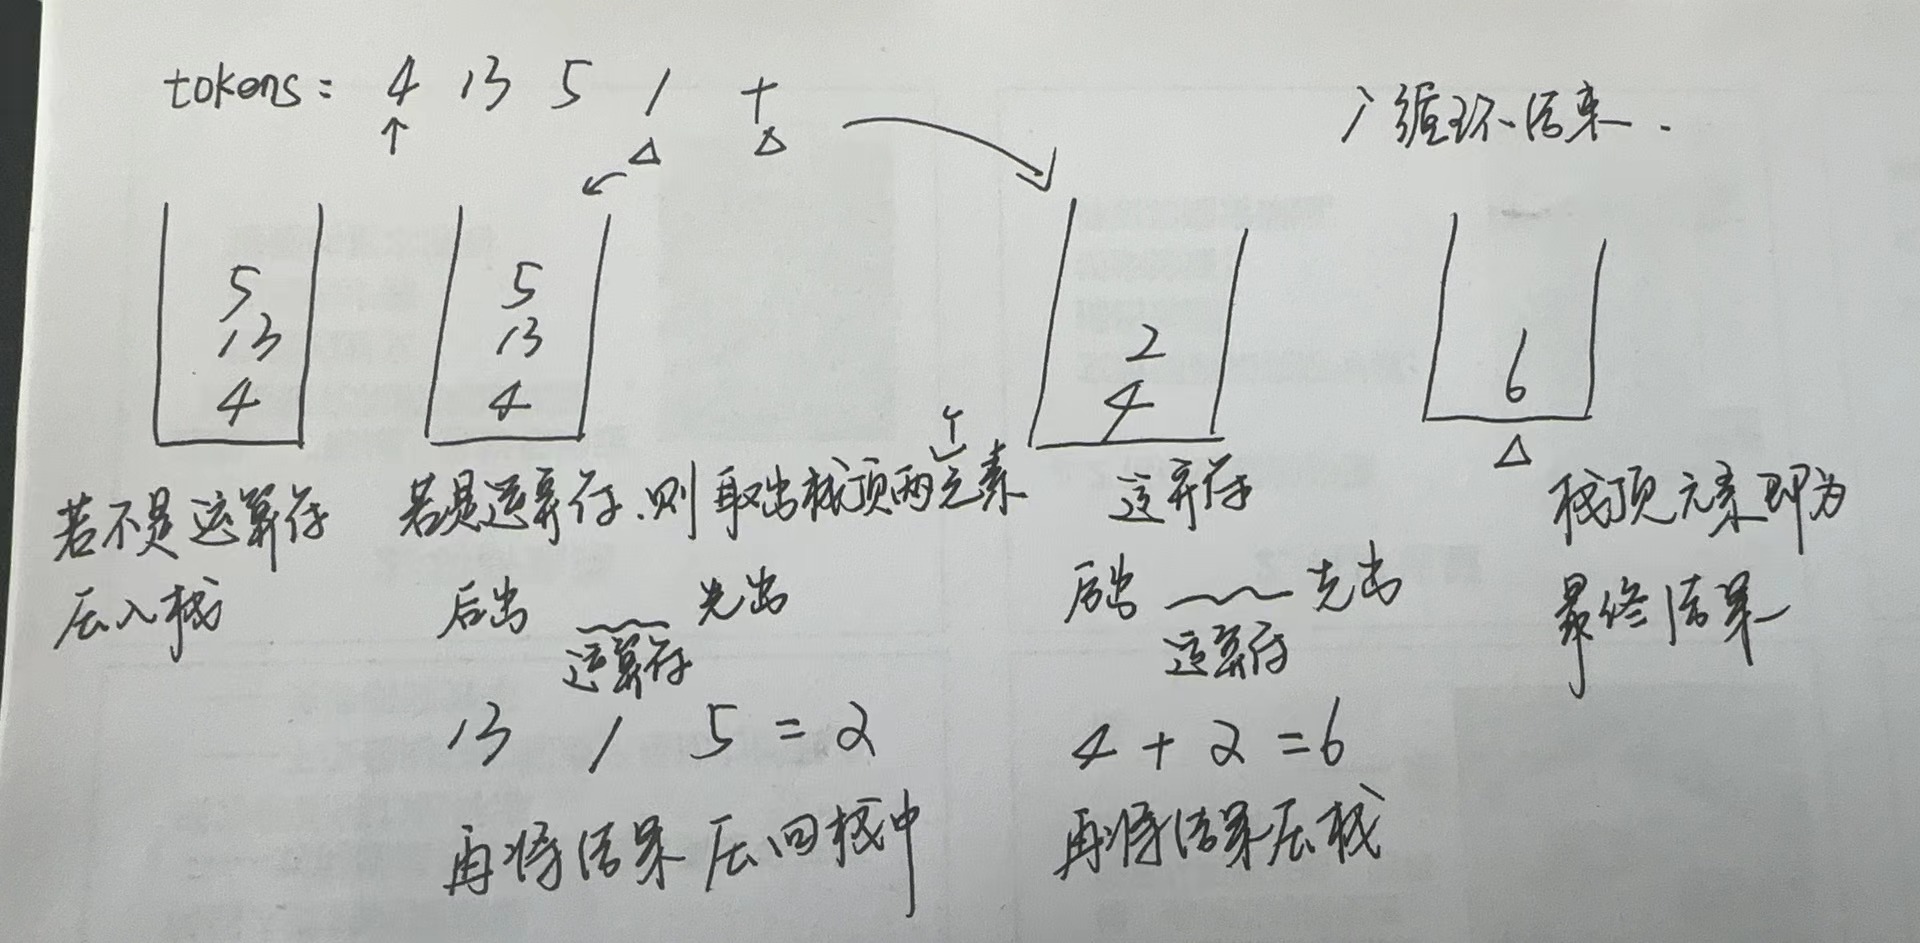 tokens: 4 13 5 / +
循环结束.
5
13
4
5
13
4
2
4
6
若不是运算符
压入栈
若是运算符.则取出栈顶两个元素
后出 先出
运算符
13 / 5 = 2
再将结果压回栈中
运算符
后出 先出
运算符
4 + 2 = 6
再将结果压栈
栈顶元素即为
最终结果